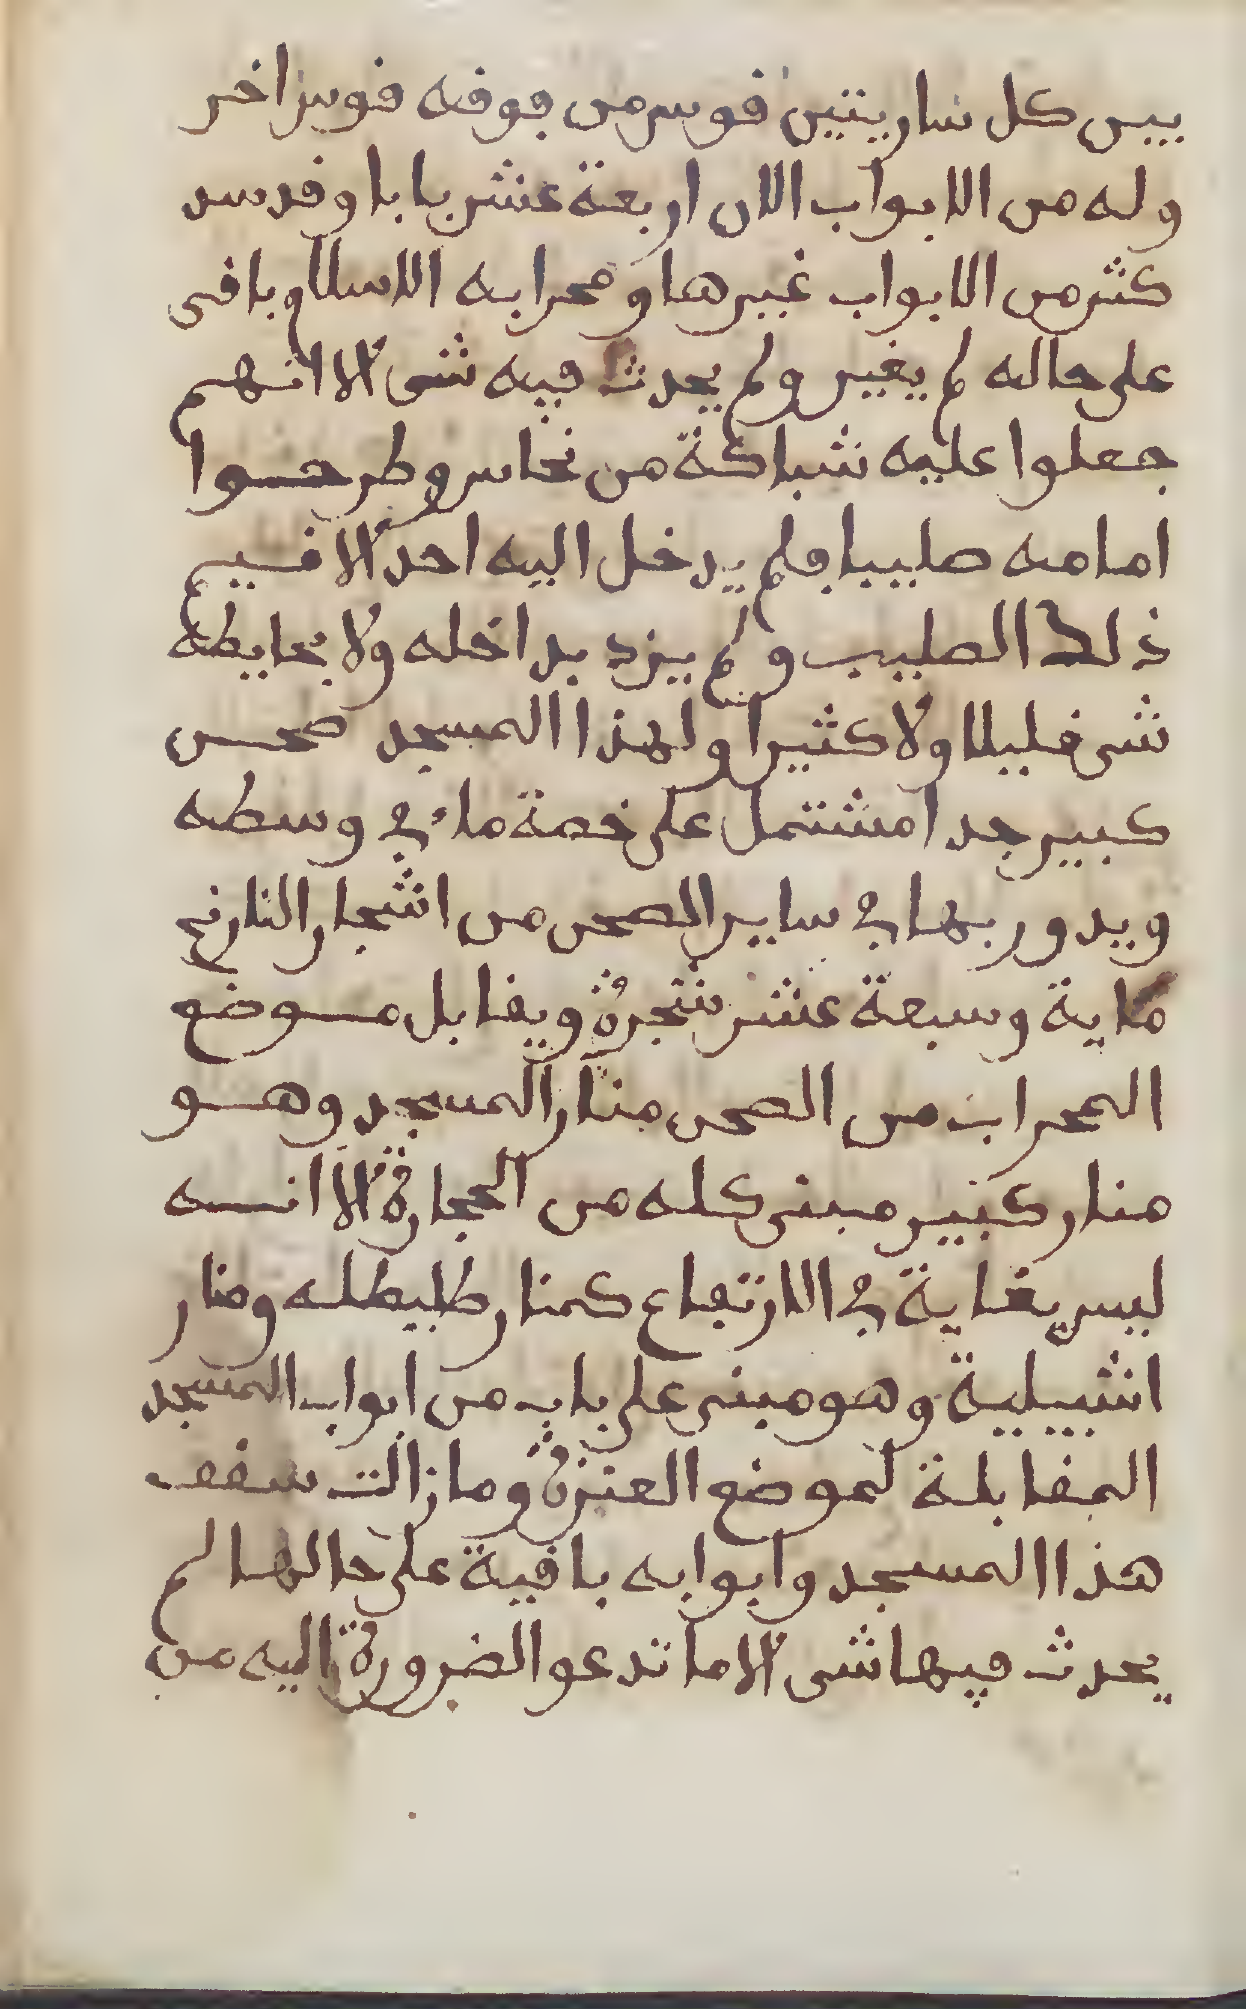 بين كل ساريتين قوس من فوقه قوس اخر
وله من الابواب الان اربعة عشر بابا وقد سد
كثير من الابواب غيرها ومحرابه الاسلامي باقي
على حاله لم يغير ولم يحدث فيه شى الا انهم
جعلوا عليه شباكة من نحاس وطرحوا
امامه صليبا فلم يدخل اليه احد الا قسيم
ذلك الصليب ولم يزد بداخله ولا بحايطه
شى قليلا ولا كثيرا ولهذا المسجد صحن
كبير جدا مشتمل على خصة ماء في وسطه
ويدور بها في ساير الصحن من اشجار النارنج
ماية وسبعة عشر شجرة ويقابل موضع
المحراب من الصحن منار المسجد وهو
منار كبير مبنى كله من الحجارة الا انه
ليس بغاية في الارتفاع كمنار طليطله ومنار
اشبيلية وهو مبنى على باب من ابواب المسجد
المقابلة لموضع العنزة وما زالت سقف
هذا المسجد وابوابه باقية على حالها لم
يحدث فيها شى الا ما تدعو الضرورة اليه من